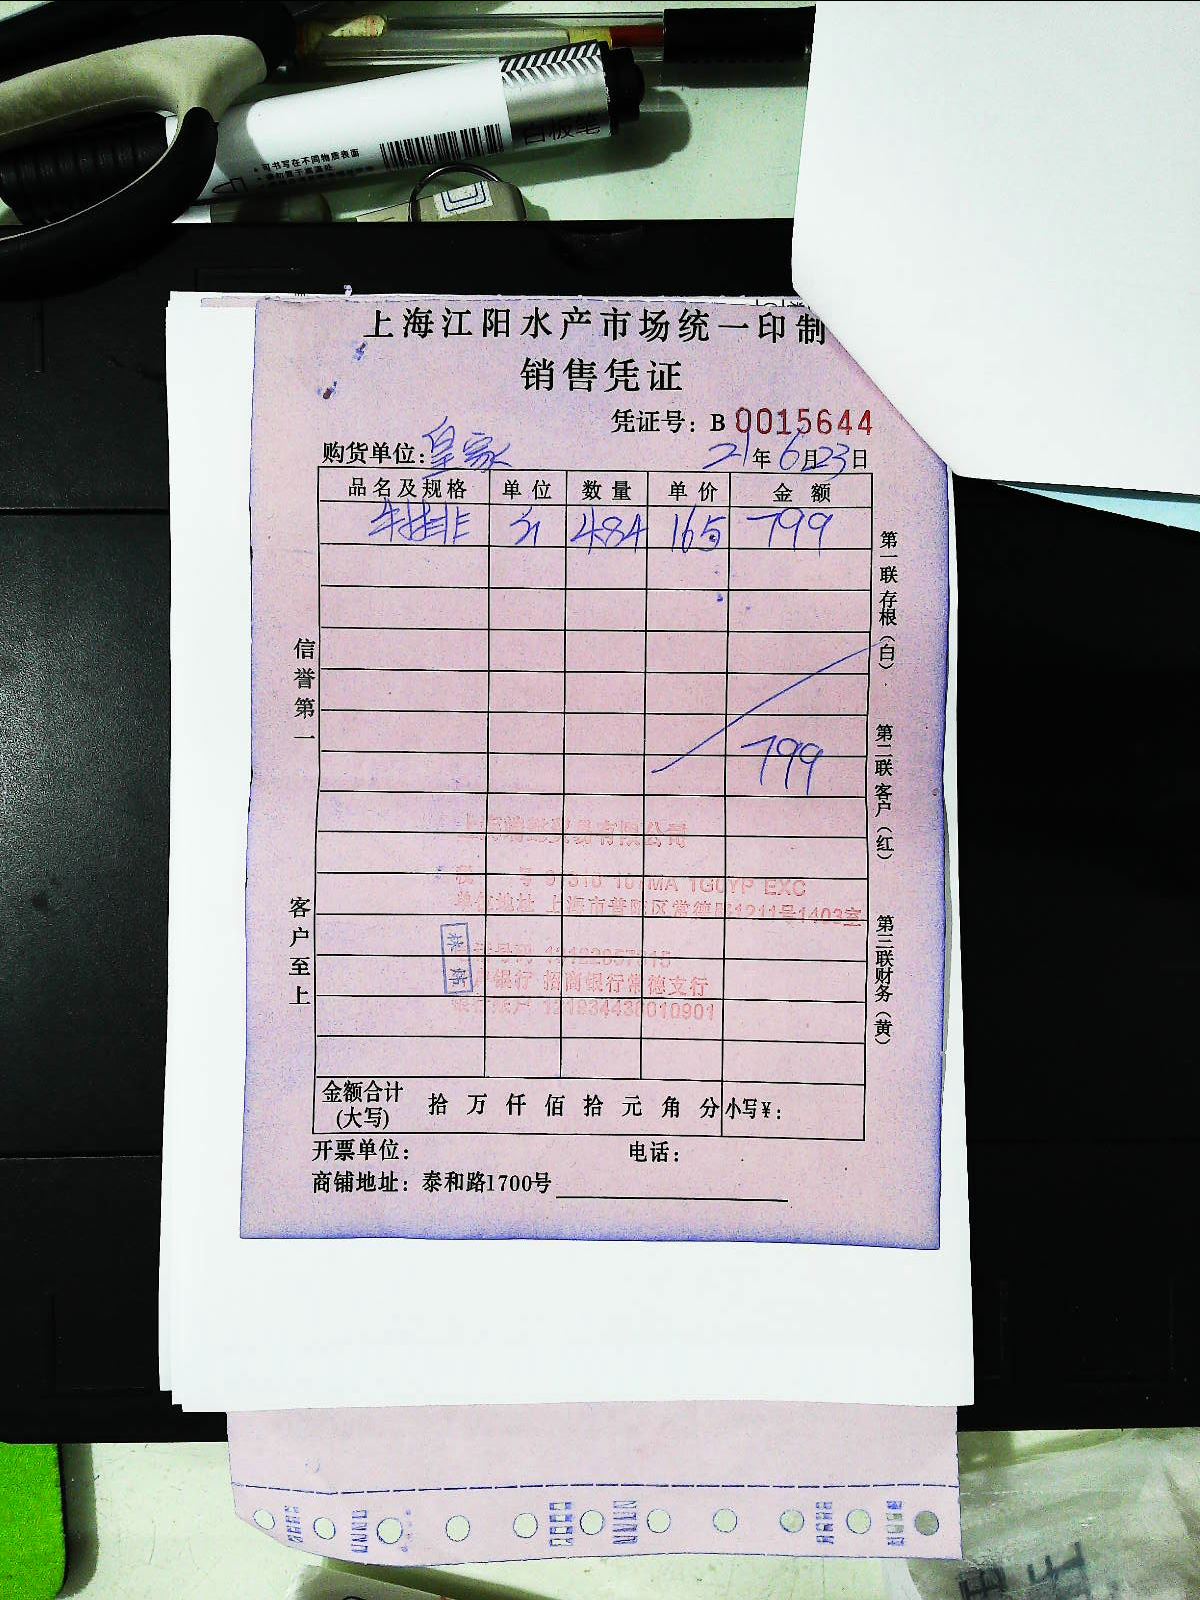 可书写在不同物质表面
白板笔
上海江阳水产市场统一印制
销售凭证
凭证号：B 0015644
购货单位：皇家 21年6月23日
品名及规格 单位 数量 单价 金额
牛排 484 165 799
799
信誉第一
客户至上
第一联存根（白）
第二联客户（红）
第三联财务（黄）
贸易有限公司
单位地址 上海市普陀区常德路1211号1403室
银行 招商银行常德支行
金额合计(大写) 拾万仟佰拾元角分 小写¥：
开票单位： 电话：
商铺地址：泰和路1700号